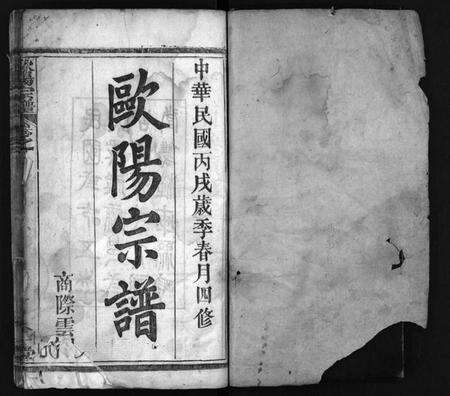 中華民國丙戌歲季春月四修
歐陽宗譜
商際雲